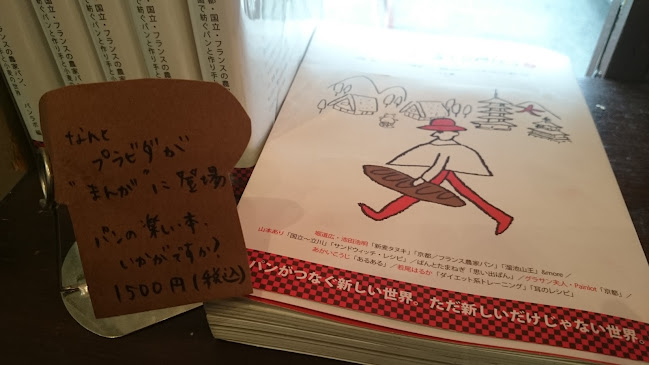 ・国立・フランスの農家パン
で紡ぐパンと作り手と
パンラボ
なんと
プラビダが
"まんが"に登場
パンの楽しい本、
いかがですか?
1500円(税込)
堀道広・池田浩明「新麦タヌキ」「京都/フランス農家パン」「溜池山王」&more /
山本あり「国立~立川」「サンドウィッチ・レシピ」/ ぱんとたまねぎ「思い出ぱん」/ グラサン夫人・Painlot「京都」/
あかいこうじ「あるある」/ 若尾はるか「ダイエット系トレーニング」「耳のレシピ」
パンがつなぐ新しい世界。ただ新しいだけじゃない世界。